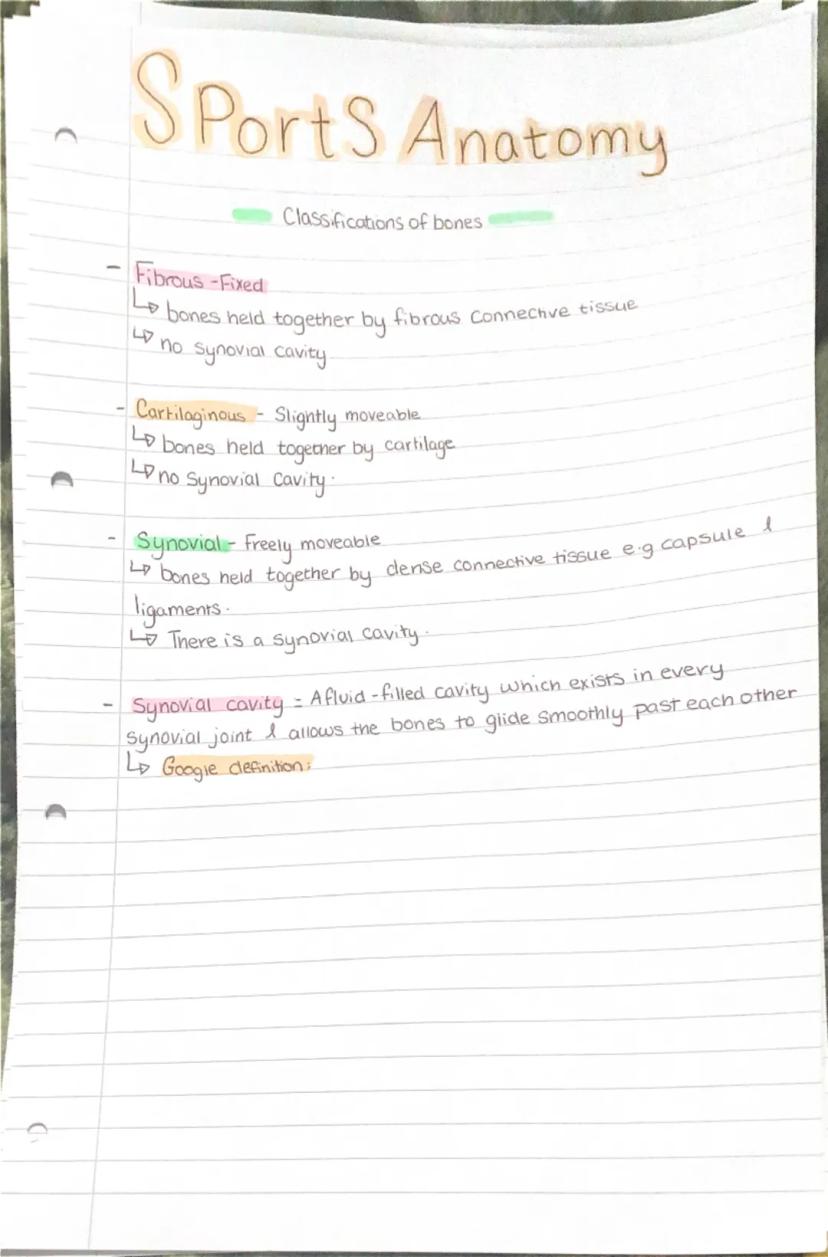 Sports Anatomy
Classifications of bones
- Fibrous - Fixed
↳ bones held together by fibrous connective tissue
↳ no synovial cavity
- Cartilaginous - Slightly moveable
↳ bones held together by cartilage
↳ no synovial cavity.
- Synovial - Freely moveable
↳ bones held together by dense connective tissue e.g capsule &
ligaments.
↳ There is a synovial cavity.
- Synovial cavity = A fluid-filled cavity which exists in every
synovial joint & allows the bones to glide smoothly past each other
↳ Google definition: